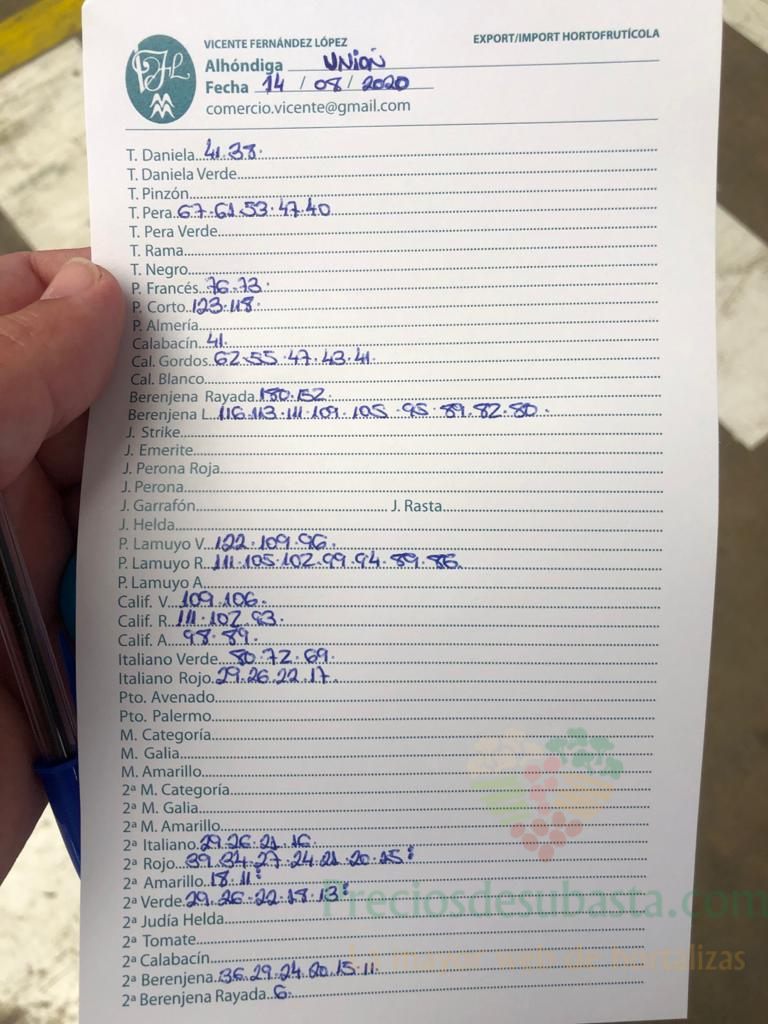 VICENTE FERNÁNDEZ LÓPEZ
EXPORT/IMPORT HORTOFRUTÍCOLA
Alhóndiga UNION
Fecha 14 / 08 / 2020
comercio.vicente@gmail.com
T. Daniela 41.38.
T. Daniela Verde
T. Pinzón
T. Pera 67.61.53.47.40
T. Pera Verde
T. Rama
T. Negro
P. Francés 76.73.
P. Corto 123.118.
P. Almería
Calabacín 41.
Cal. Gordos 62.55.47.43.41.
Cal. Blanco
Berenjena Rayada 180.152.
Berenjena L. 116.113.111.109.105.95.89.82.80.
J. Strike
J. Emerite
J. Perona Roja
J. Perona
J. Garrafón J. Rasta
J. Helda
P. Lamuyo V. 122.109.96.
P. Lamuyo R. 111.105.102.99.94.89.86.
P. Lamuyo A.
Calif. V. 109.106.
Calif. R. 111.102.93.
Calif. A. 98.89.
Italiano Verde 80.72.69.
Italiano Rojo 29.26.22.17.
Pto. Avenado
Pto. Palermo
M. Categoría
M. Galia
M. Amarillo
2ª M. Categoría
2ª M. Galia
2ª M. Amarillo
2ª Italiano 29.26.21.16.
2ª Rojo 39.34.27.24.21.20.15
2ª Amarillo 18.11
2ª Verde 29.26.22.18.13
2ª Judía Helda
2ª Tomate
2ª Calabacín
2ª Berenjena 36.29.24.20.15.11.
2ª Berenjena Rayada 6.
Preciosdesubasta.com
La mayor web de hortalizas